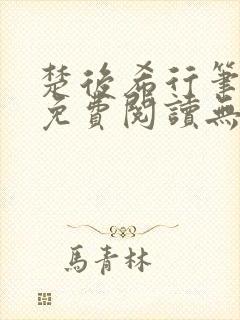 楚後希行筆
免費閱讀無
馬青林